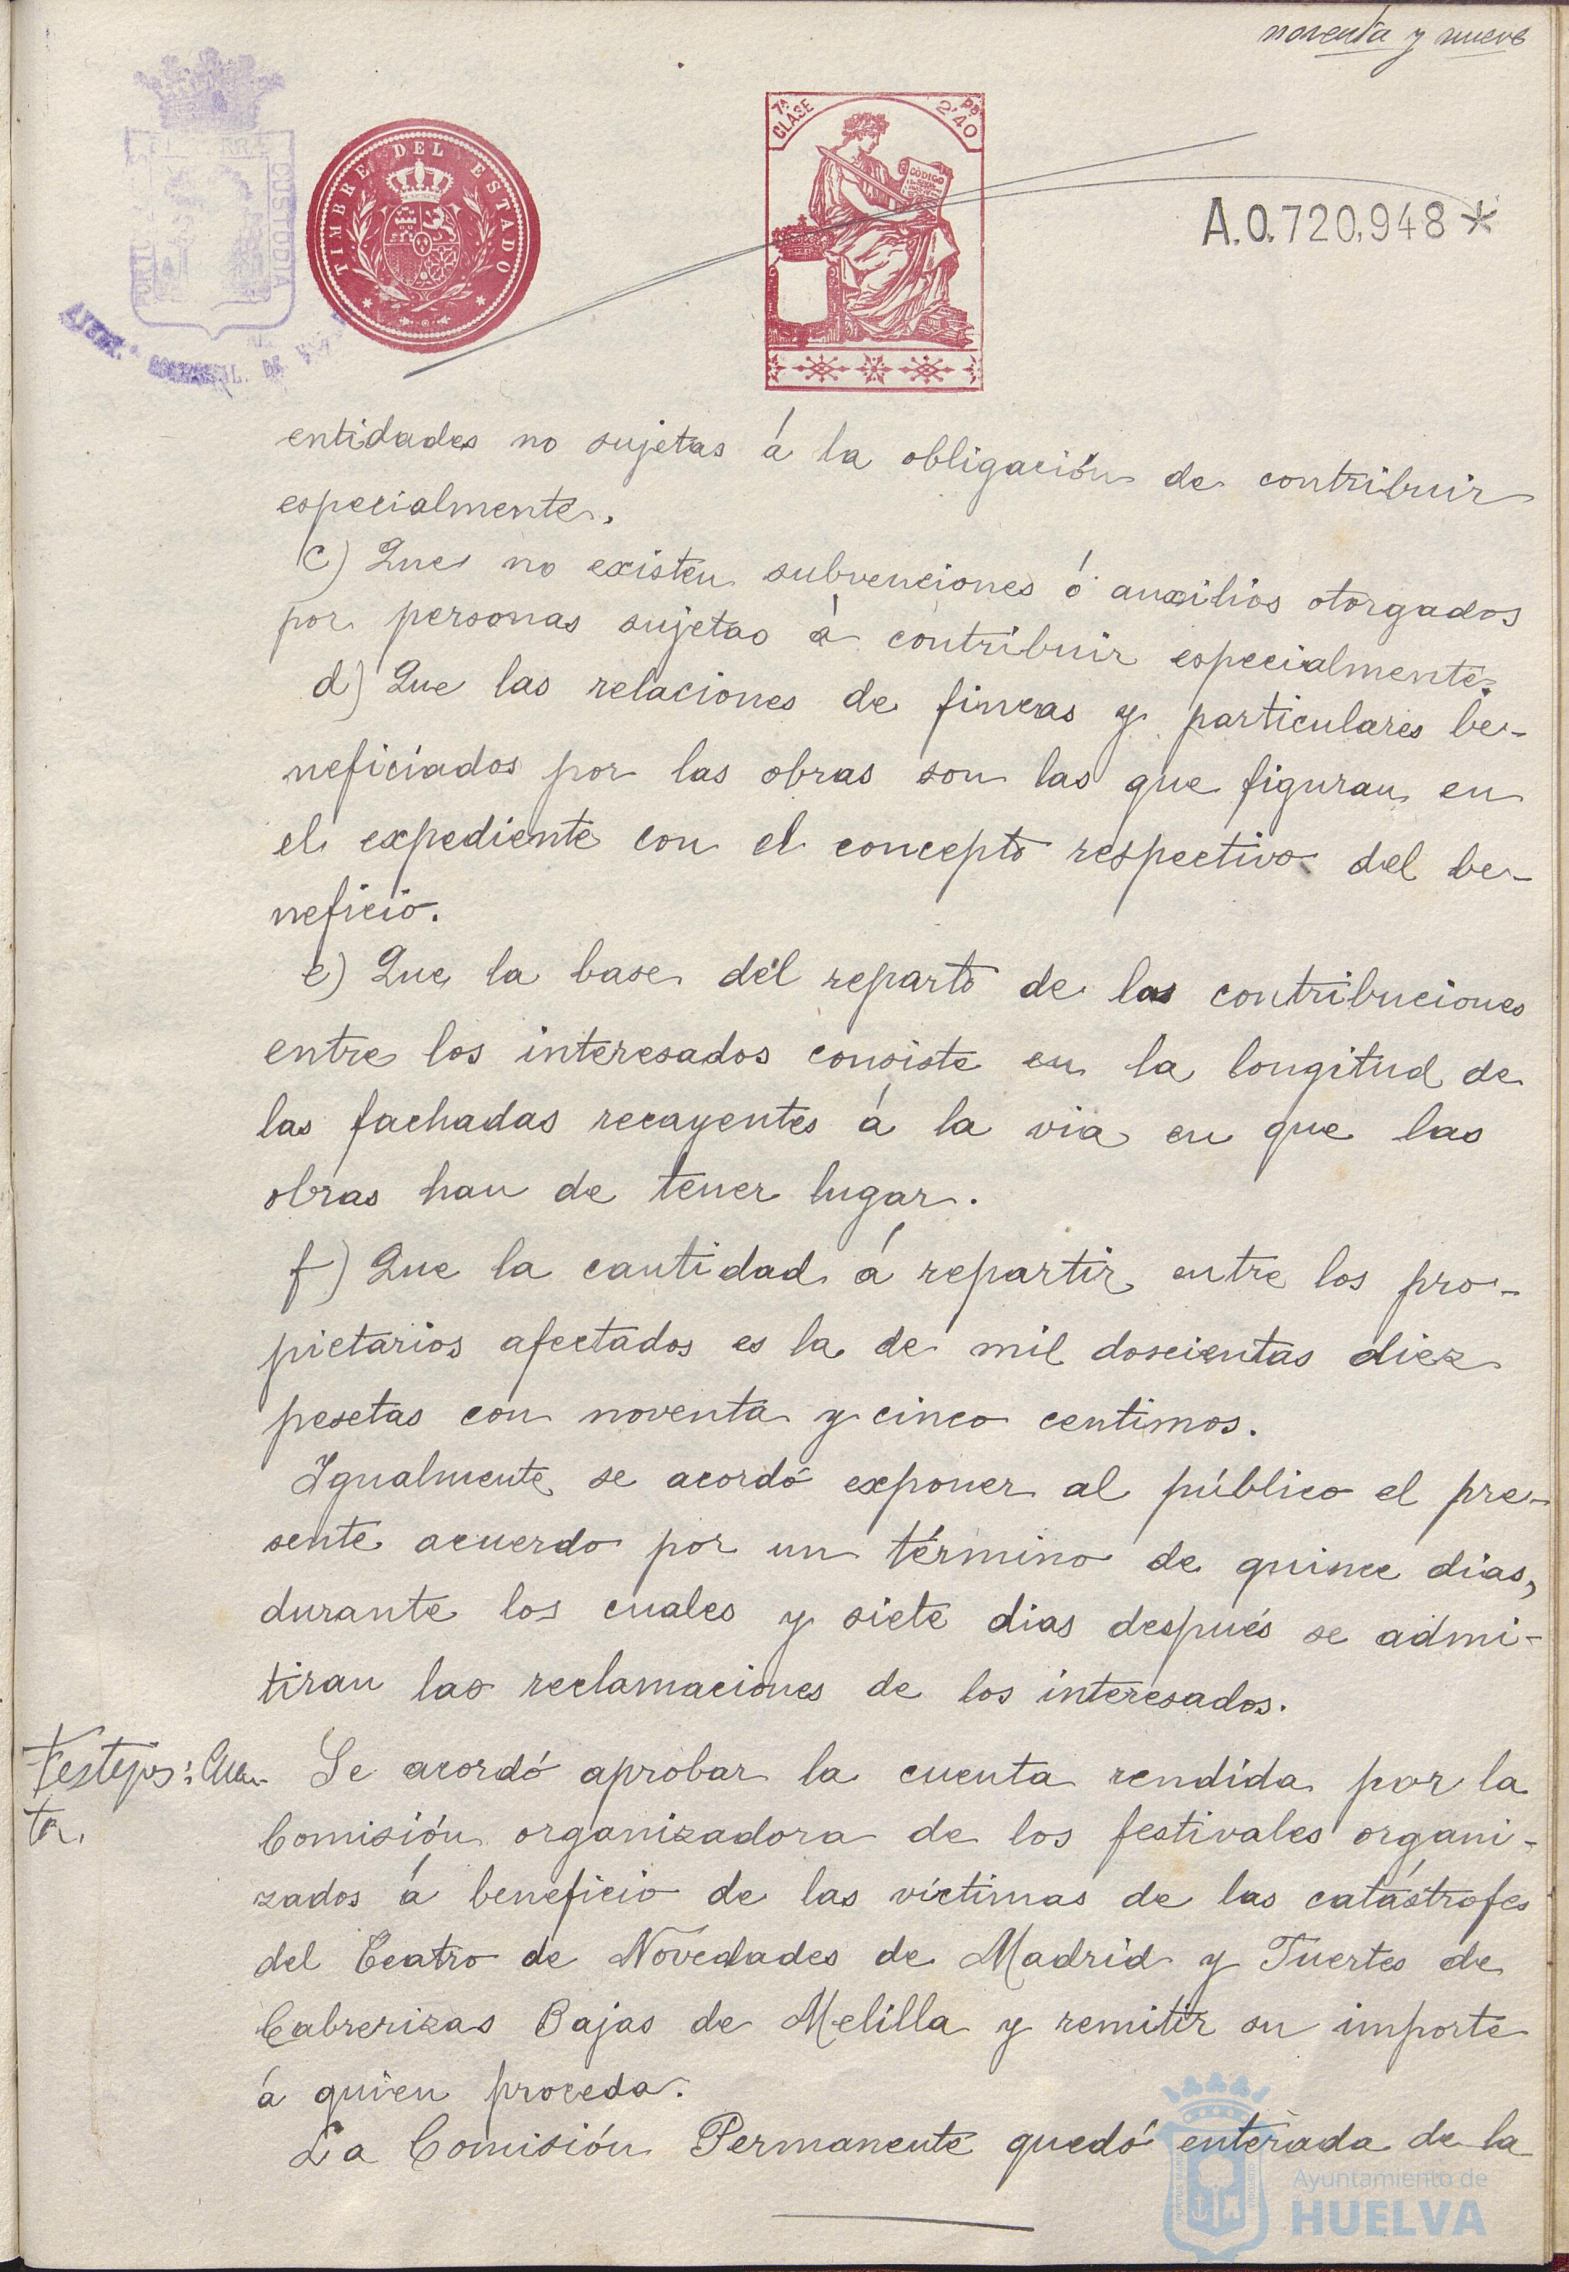 noventa y nueve
TIMBRE DEL ESTADO
7ª CLASE
2'40 Ps
CÓDIGO
A.0.720,948 *
CUSTODIA
entidades no sujetas á la obligación de contribuir
especialmente.
c) Que no existen subvenciones ó auxilios otorgados
por personas sujetas á contribuir especialmente.
d) Que las relaciones de fincas y particulares be-
neficiados por las obras son las que figuran en
el expediente con el concepto respectivo del be-
neficio.
e) Que la base del reparto de las contribuciones
entre los interesados consiste en la longitud de
las fachadas recayentes á la via en que las
obras han de tener lugar.
f) Que la cantidad á repartir entre los pro-
pietarios afectados es la de mil doscientas diez
pesetas con noventa y cinco centimos.
Igualmente se acordó exponer al público el pre-
sente acuerdo por un término de quince dias,
durante los cuales y siete dias después se admi-
tiran las reclamaciones de los interesados.
Festejos: Cuen-
ta.
Se acordó aprobar la cuenta rendida por la
Comisión organizadora de los festivales organi-
zados á beneficio de las víctimas de las catástrofes
del Teatro de Novedades de Madrid y Fuertes de
Cabrerizas Bajas de Melilla y remitir su importe
á quien proceda.
La Comisión Permanente quedó enterada de la
Ayuntamiento de
HUELVA